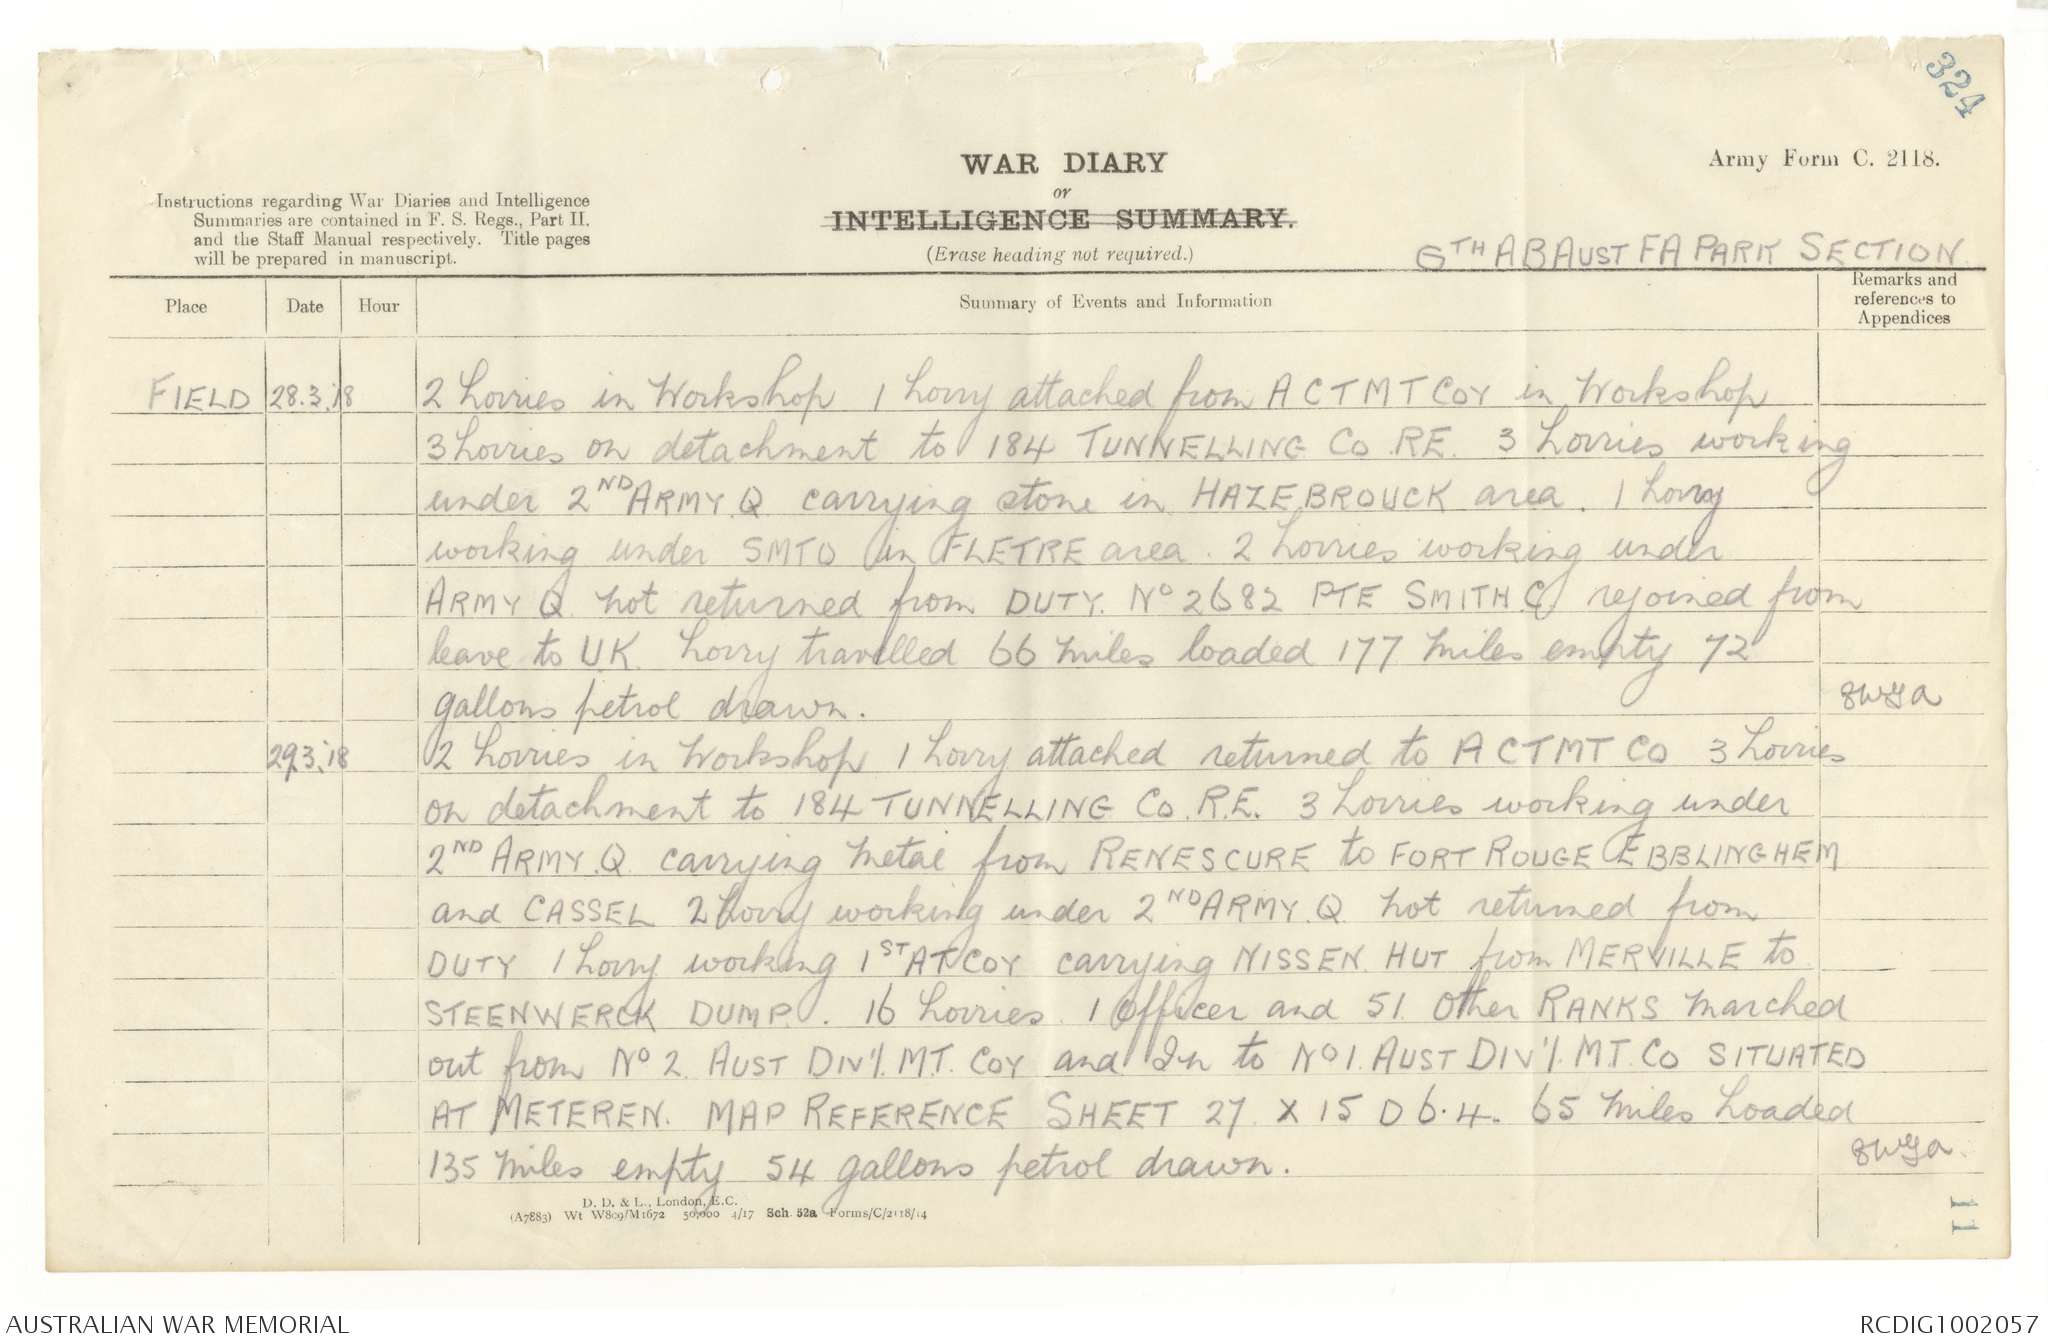 324
WAR DIARY
or
INTELLIGENCE SUMMARY.
(Erase heading not required.)
Army Form C. 2118.
Instructions regarding War Diaries and Intelligence
Summaries are contained in F. S. Regs., Part II.
and the Staff Manual respectively. Title pages
will be prepared in manuscript.
6TH A B AUST F A PARK SECTION
Place
Date
Hour
Summary of Events and Information
Remarks and
references to
Appendices
FIELD 28.3.18 2 Lorries in Workshop 1 Lorry attached from A C T M T COY in Workshop
3 Lorries on detachment to 184 TUNNELLING CO. RE. 3 Lorries working
under 2ND ARMY. Q carrying stone in HAZEBROUCK area. 1 Lorry
working under SMTO in FLETRE area. 2 Lorries working under
ARMY Q not returned from DUTY. No 2682 PTE SMITH C. rejoined from
leave to UK. Lorry travelled 66 Miles loaded 177 Miles empty 72
gallons petrol drawn.
29.3.18 2 Lorries in Workshop 1 Lorry attached returned to A C T M T CO 3 Lorries
on detachment to 184 TUNNELLING CO. R.E. 3 Lorries working under
2ND ARMY. Q carrying Metal from RENESCURE to FORT ROUGE EBBLINGHEM
and CASSEL 2 Lorry working under 2ND ARMY. Q not returned from
DUTY 1 Lorry working 1ST AT COY carrying NISSEN HUT from MERVILLE to
STEENWERCK DUMP. 16 Lorries 1 Officer and 51 Other RANKS Marched
out from No 2 AUST DIV'L M.T. COY and In to No 1. AUST DIV'L M.T. CO SITUATED
AT METEREN. MAP REFERENCE SHEET 27 X 15 D 6.4. 65 Miles Loaded
135 Miles empty 54 gallons petrol drawn.
D. D. & L., London, E.C.
(A7883) Wt W809/M1672 50,000 4/17 Sch. 52a Forms/C/2118/14
11
AUSTRALIAN WAR MEMORIAL
RCDIG1002057